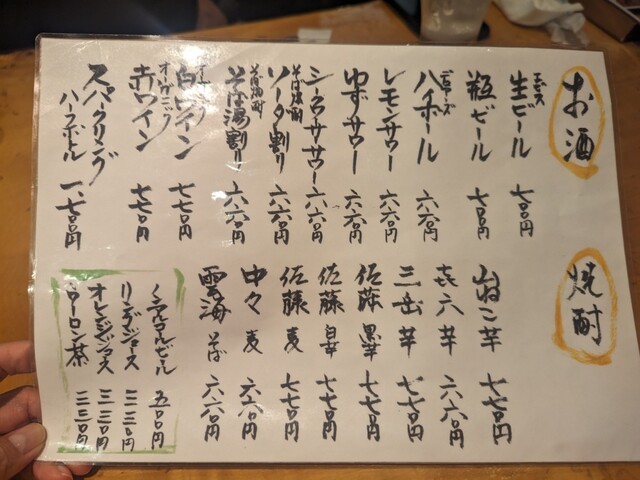 お酒
エビス
生ビール 七〇〇円
瓶ビール 七〇〇円
ハイボール 六六〇円
レモンサワー 六六〇円
ゆずサワー 六六〇円
シークヮサーサワー 六六〇円
そば焼酎
ソーダ割り 六六〇円
そば焼酎
そば湯割り 六六〇円
白ワイン 七七〇円
オーガニック
赤ワイン 七七〇円
スパークリング
ハーフボトル 一、七〇〇円
焼酎
山ねこ 芋 七七〇円
㐂六 芋 六六〇円
三岳 芋 七七〇円
佐藤 黒芋 七七〇円
佐藤 白芋 七七〇円
佐藤 麦 七七〇円
中々 麦 六六〇円
雲海 そば 六六〇円
ノンアルコールビール 五〇〇円
リンゴジュース 三三〇円
オレンジジュース 三三〇円
ウーロン茶 三三〇円